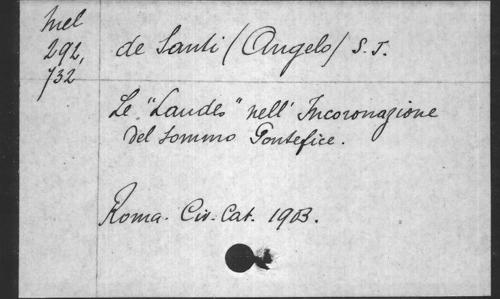 Mel
292,
732
de Santi / (Angelo) S. J.
Le "Laudes" nell' Incoronazione
del sommo Pontefice.
Roma. Civ. Cat. 1903.